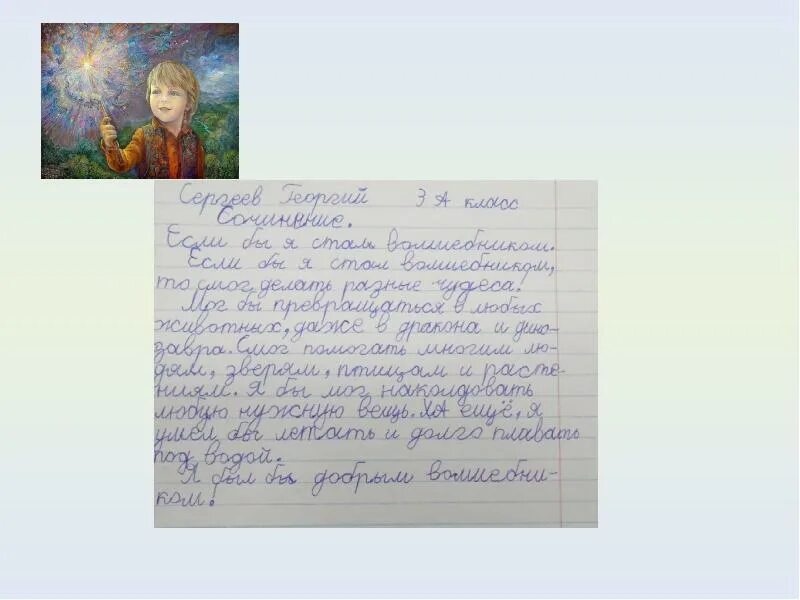 Сергеев Георгий 3 А класс
Сочинение.
Если бы я стал волшебником.
Если бы я стал волшебником,
то смог делать разные чудеса.
Мог бы превращаться в любых
животных, даже в дракона и дино-
завра. Смог помогать многим лю-
дям, зверям, птицам и расте-
ниям. Я бы мог наколдовать
любую нужную вещь. А ещё, я
умел бы летать и долго плавать
под водой.
Я был бы добрым волшебни-
ком!